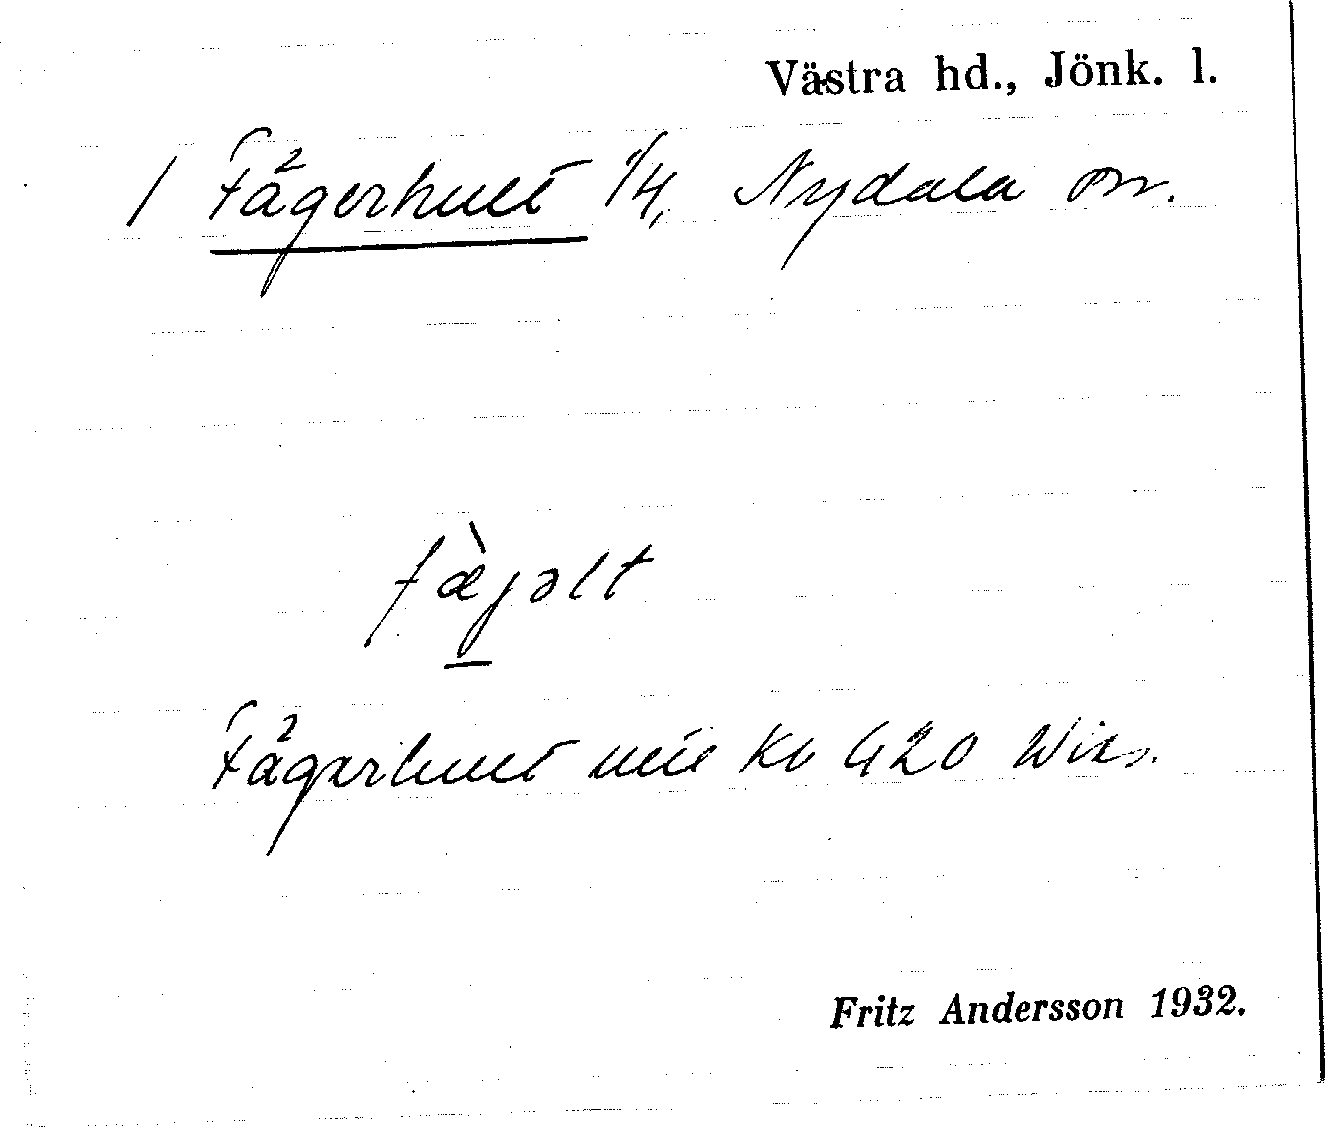 Västra hd., Jönk. l.
1 Fägerhult 1/4, Nydala sn.
fæ̀jəlt
Fägerhult till Kv 420
Fritz Andersson 1932.